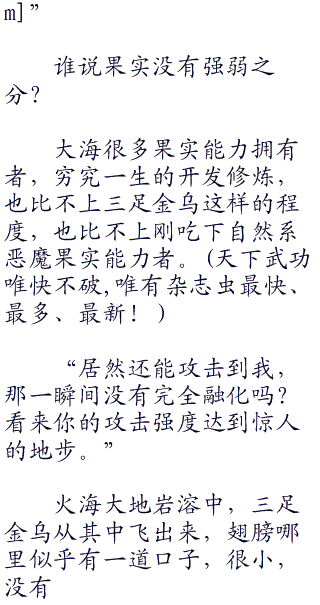 m]”
谁说果实没有强弱之
分？
大海很多果实能力拥有
者，穷究一生的开发修炼，
也比不上三足金乌这样的程
度，也比不上刚吃下自然系
恶魔果实能力者。(天下武功
唯快不破,唯有杂志虫最快、
最多、最新！)
“居然还能攻击到我，
那一瞬间没有完全融化吗？
看来你的攻击强度达到惊人
的地步。”
火海大地岩溶中，三足
金乌从其中飞出来，翅膀哪
里似乎有一道口子，很小，
没有